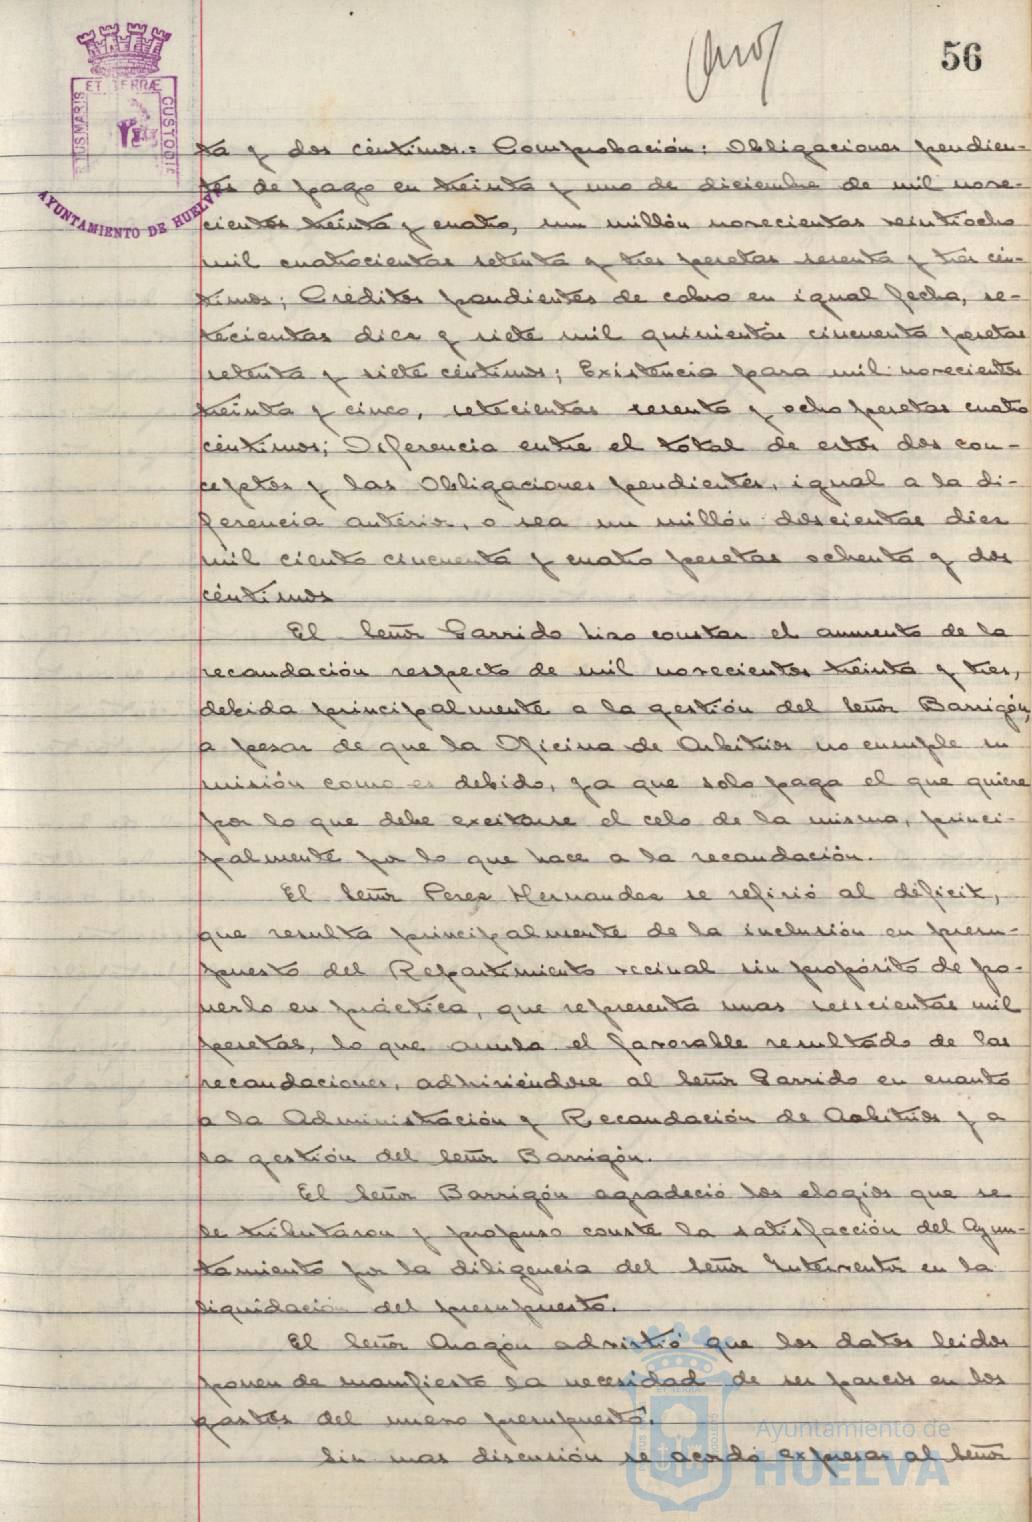 56
ET TERRÆ
CUSTODIE
AYUNTAMIENTO DE HUELVA
ta y dos céntimos.= Comprobación: Obligaciones pendien-
tes de pago en treinta y uno de diciembre de mil nove-
cientos treinta y cuatro, un millón novecientas veintiocho
mil cuatrocientas setenta y tres pesetas sesenta y tres cén-
timos; Créditos pendientes de cobro en igual fecha, se-
tecientas diez y siete mil quinientas cincuenta pesetas
setenta y siete céntimos; Existencia para mil novecientos
treinta y cinco, setecientas sesenta y ocho pesetas cuatro
céntimos; Diferencia entre el total de estos dos con-
ceptos y las Obligaciones pendientes, igual a la di-
ferencia anterior, o sea un millón doscientas diez
mil ciento cincuenta y cuatro pesetas ochenta y dos
céntimos
El Señor Garrido hizo constar el aumento de la
recaudación respecto de mil novecientos treinta y tres,
debida principalmente a la gestión del Señor Barrigón,
a pesar de que la Oficina de Arbitrios no cumple su
misión como es debido, ya que solo paga el que quiere
por lo que debe excitarse el celo de la misma, princi-
palmente por lo que hace a la recaudación.
El Señor Perez Hernandez se refirió al déficit,
que resulta principalmente de la inclusión en presu-
puesto del Repartimiento vecinal sin propósito de po-
nerlo en práctica, que representa unas seiscientas mil
pesetas, lo que anula el favorable resultado de las
recaudaciones, adhiriéndose al Señor Garrido en cuanto
a la Administración y Recaudación de Arbitrios y a
la gestión del Señor Barrigón.
El Señor Barrigón agradeció los elogios que se
le tributaron y propuso conste la satisfacción del Ayun-
tamiento por la diligencia del Señor Interventor en la
liquidación del presupuesto.
El Señor Aragón advirtió que los datos leidos
ponen de manifiesto la necesidad de ser parcos en los
gastos del nuevo presupuesto.
Sin mas discusión se acordó expresar al Señor
Ayuntamiento de
HUELVA